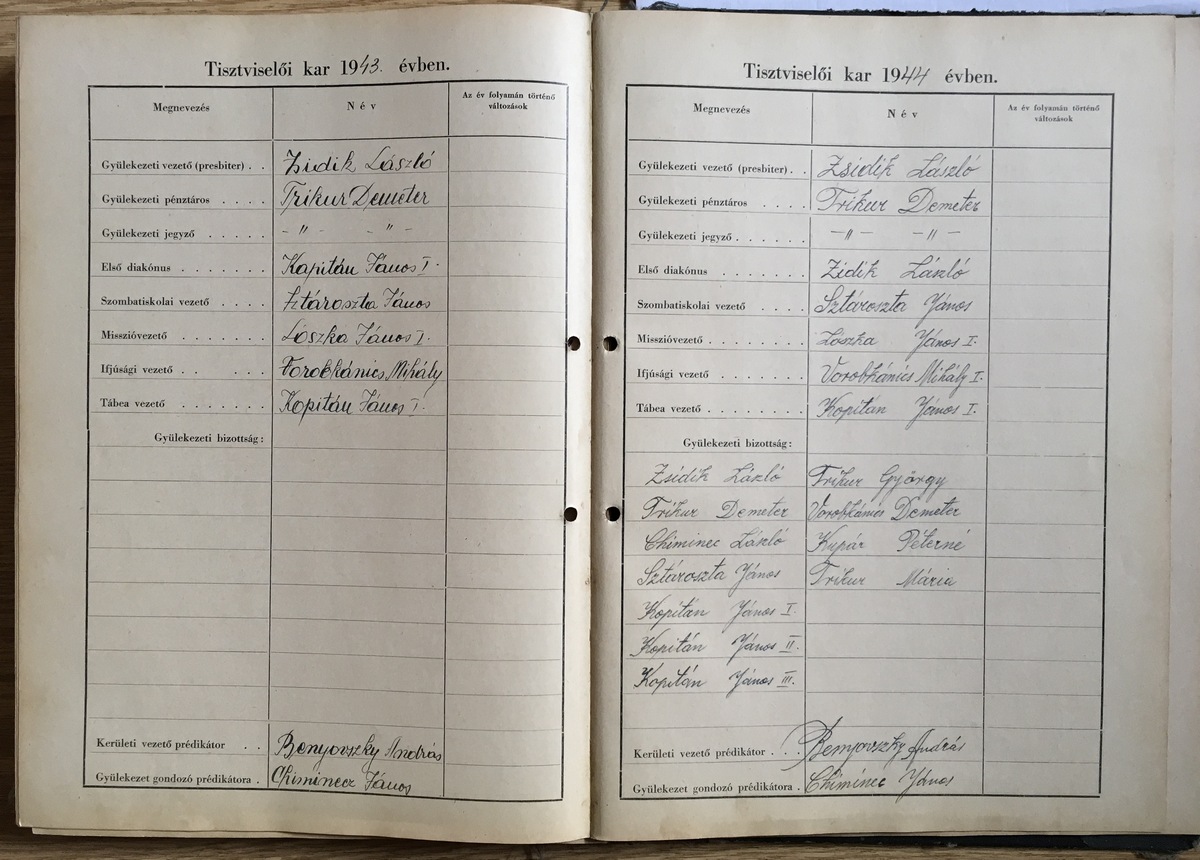 Tisztviselői kar 1943. évben.
Megnevezés Név Az év folyamán történő változások
Gyülekezeti vezető (presbiter) . . Zsidik László
Gyülekezeti pénztáros . . . . Trikur Demeter
Gyülekezeti jegyző . . . . . . - " - - " -
Első diakónus . . . . . . . Kapitán János I.
Szombatiskolai vezető . . . . Sztároszta János
Misszióvezető . . . . . . . Loszka János I.
Ifjúsági vezető . . . . . . Vorobkánics Mihály
Tábea vezető . . . . . . . Kopitán János I.
Gyülekezeti bizottság:
Kerületi vezető prédikátor . . Benyovszky András
Gyülekezet gondozó prédikátora . Chiminecz János
Tisztviselői kar 1944 évben.
Megnevezés Név Az év folyamán történő változások
Gyülekezeti vezető (presbiter) . . Zsidik László
Gyülekezeti pénztáros . . . . Trikur Demeter
Gyülekezeti jegyző . . . . . . - " - - " -
Első diakónus . . . . . . . Zidik László
Szombatiskolai vezető . . . . Sztároszta János
Misszióvezető . . . . . . . Loszka János I.
Ifjúsági vezető . . . . . . Vorobkánics Mihály I.
Tábea vezető . . . . . . . Kopitán János I.
Gyülekezeti bizottság:
Zsidik László Trikur György
Trikur Demeter Vorobkánics Demeter
Chiminec László Kupár Péterné
Sztároszta János Trikur Mária
Kopitán János I.
Kopitán János II.
Kopitán János III.
Kerületi vezető prédikátor . . . Benyovszky András
Gyülekezet gondozó prédikátora . Chiminec János